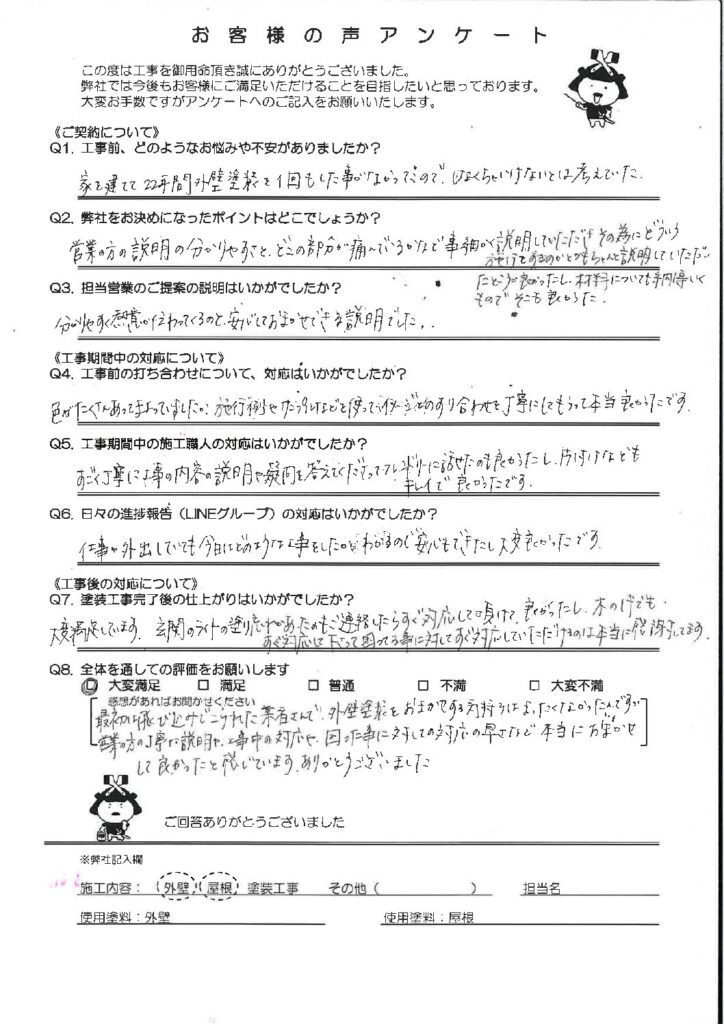 お客様の声アンケート
この度は工事を御用命頂き誠にありがとうございました。
弊社では今後もお客様にご満足いただけることを目指したいと思っております。
大変お手数ですがアンケートへのご記入をお願いいたします。
《ご契約について》
Q1. 工事前、どのようなお悩みや不安がありましたか？
家を建てて22年間外壁塗装を1回もした事がなかったので、しなくちゃいけないとは考えていた.
Q2. 弊社をお決めになったポイントはどこでしょうか？
営業の方の説明の分かりやすさと、どこの部分が痛んでいるかなど事細かく説明していただき その為にどういう
施行をするのかとかもちゃんと説明していただい
たところが良かったし、材料についても
もので そこも良かった.
Q3. 担当営業のご提案の説明はいかがでしたか？
分かりやすく が伝わってくるのと、安心しておまかせできる説明でした.
《工事期間中の対応について》
Q4. 工事前の打ち合わせについて、対応はいかがでしたか？
色がたくさんあってまよっていましたが、施行例や などを使って のすり合わせを丁寧にしてもらって本当良かったです.
Q5. 工事期間中の施工職人の対応はいかがでしたか？
すごく丁寧に工事の内容の説明や疑問を答えてくださって に話せたのも良かったし、片付けなども
キレイで良かったです.
Q6. 日々の進捗報告（LINEグループ）の対応はいかがでしたか？
仕事や外出していても今日はどのような工事をしたかがわかるので安心もできたし大変良かったです.
《工事後の対応について》
Q7. 塗装工事完了後の仕上がりはいかがでしたか？
大変満足しています. 玄関のライトの塗り忘れがあったのもご連絡したらすぐ対応して頂けて、良かったし、木の件でも、
すぐ対応して下さって困ってる事に対してすぐ対応していただけるのは本当に してます.
Q8. 全体を通しての評価をお願いします
大変満足 □ 満足 □ 普通 □ 不満 □ 大変不満
感想があればお聞かせください
最初は飛び込みでこられた業者さんで、外壁塗装をおまかせする気持ちはまったくなかったんですが
営業の方の丁寧な説明や、工事中の対応や、困った事に対しての対応の早さなど本当におまかせ
して良かったと感じています. ありがとうございました
ご回答ありがとうございました
※弊社記入欄
施工内容：（外壁／屋根）塗装工事 その他（ ） 担当名
使用塗料：外壁 使用塗料：屋根